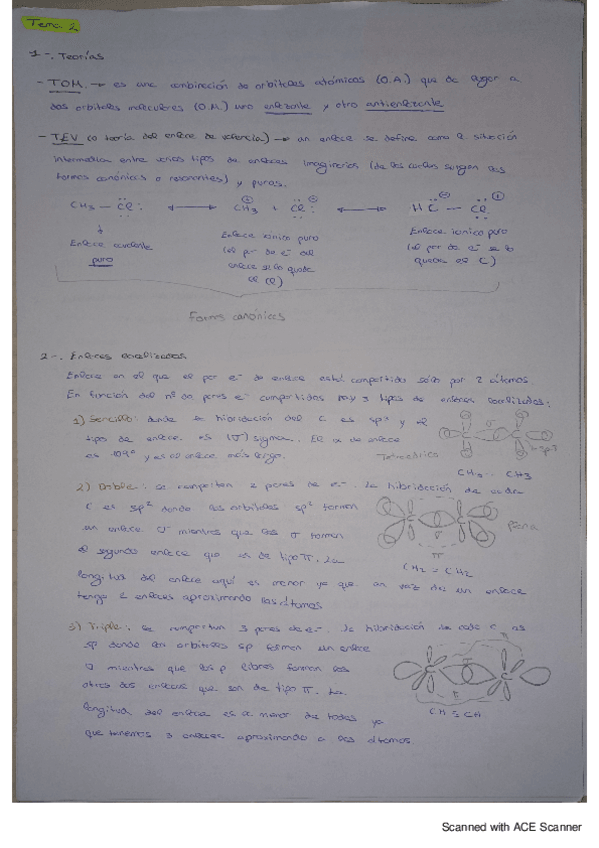 Tema 2
1-. Teorías
- TOM. → es una combinación de orbitales atómicos (O.A.) que da lugar a
dos orbitales moleculares (O.M.) uno enlazante y otro antienlazante
- TEV (o teoría del enlace de valencia) → un enlace se define como la situación
intermedia entre varios tipos de enlaces imaginarios (de los cuales surgen las
formas canónicas o resonantes) y puros.
CH3 - Cl: ↔ CH3 + Cl: ↔ HC - Cl:
Enlace covalente
puro
Enlace iónico puro
(el par de e- del
enlace se lo queda
el Cl)
Enlace iónico puro
(el par de e- se lo
queda el C)
Formas canónicas
2-. Enlaces localizados
Enlace en el que el par e- de enlace está compartido sólo por 2 átomos.
En función del nº de pares e- compartidos hay 3 tipos de enlaces localizados:
1) Sencillo: donde la hibridación del C es sp3 y el
tipo de enlace es (σ) sigma. El α de enlace
es 109° y es el enlace más largo.
Tetraédrico
σ
sp3
CH3 - CH3
2) Doble: se comparten 2 pares de e-. La hibridación de cada
C es sp2 donde los orbitales sp2 forman
un enlace σ mientras que los σ forman
el segundo enlace que es de tipo π. La
longitud del enlace aquí es menor ya que en vez de un enlace
tengo 2 enlaces aproximando los átomos
π
plana
CH2 = CH2
3) Triple: se comparten 3 pares de e-. La hibridación de cada C es
sp donde los orbitales sp forman un enlace
σ mientras que los p libres forman los
otros dos enlaces que son de tipo π. La
longitud del enlace es la menor de todas ya
que tenemos 3 enlaces aproximando a los átomos.
π
CH ≡ CH
Scanned with ACE Scanner